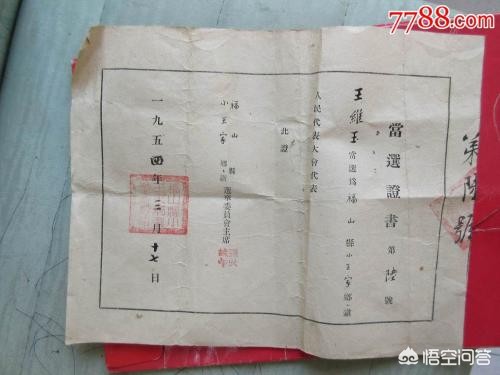 當選證書 第陸號
王維玉當選為福山縣小王家鄉、鎮
人民代表大會代表
此證
福山縣
小王家鄉、鎮選舉委員會主席
一九五四年三月十七日
第陸號
7788.com
悟空问答